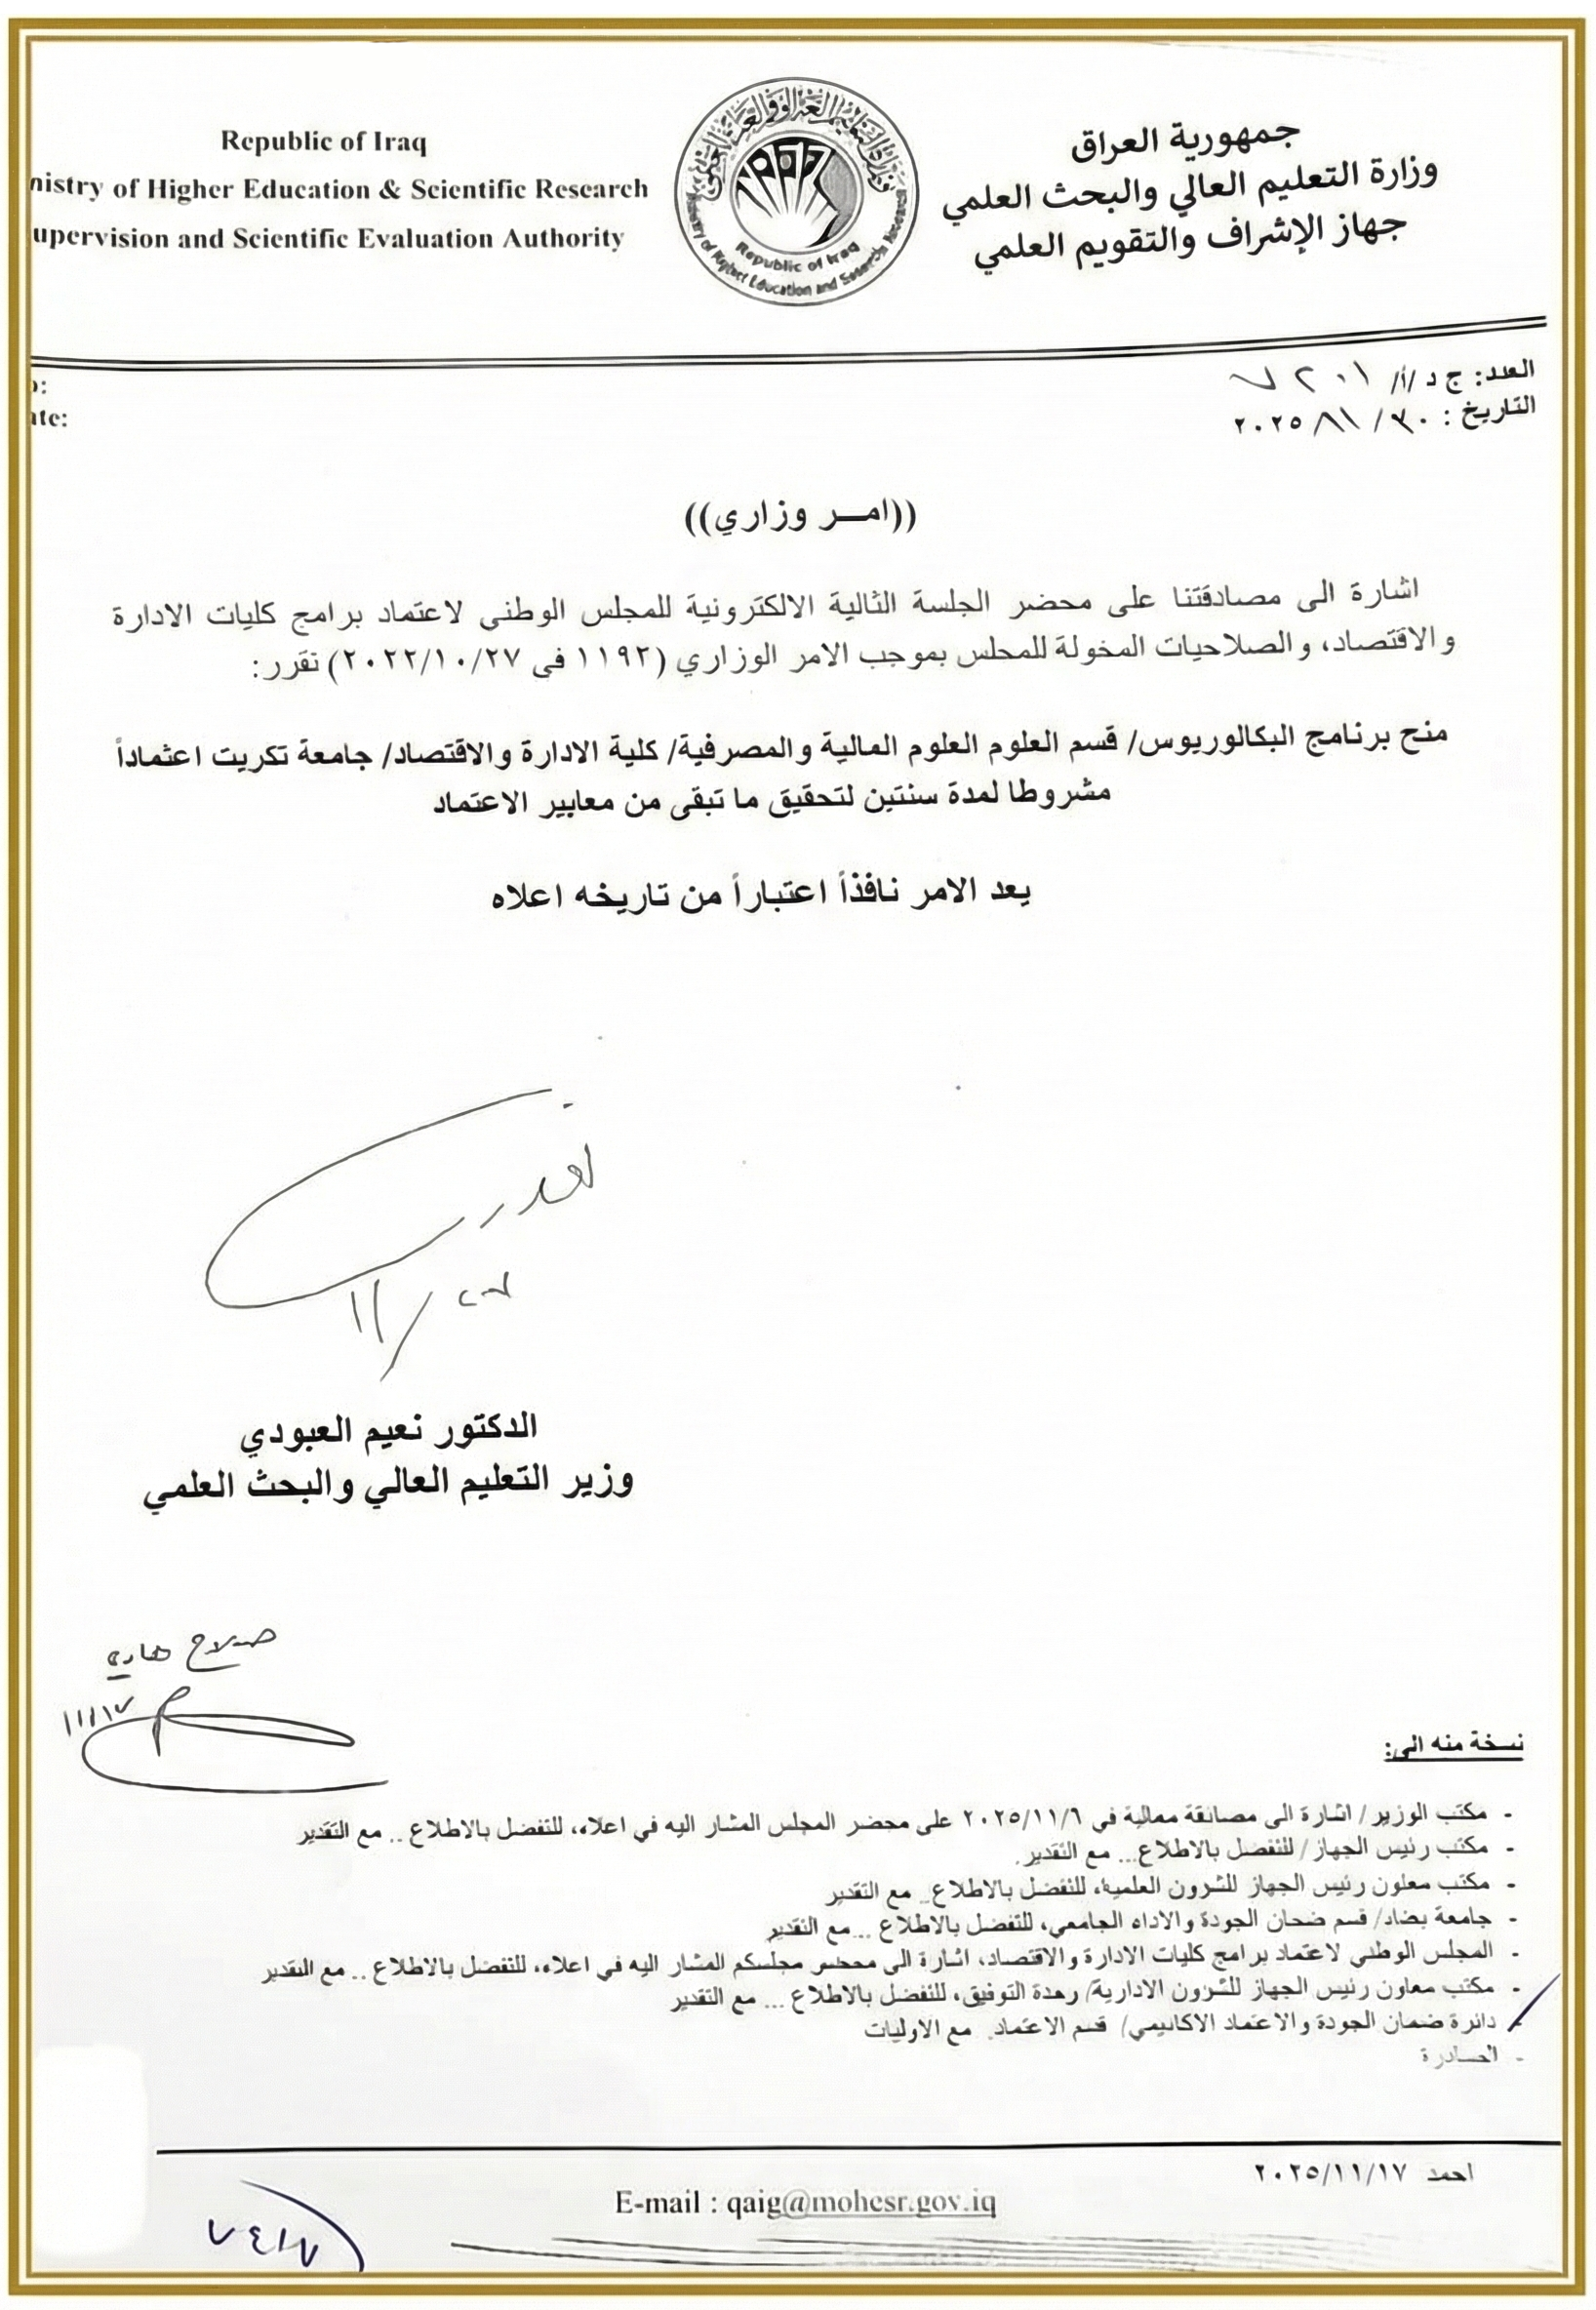 Republic of Iraq
nistry of Higher Education & Scientific Research
upervision and Scientific Evaluation Authority
جمهورية العراق
وزارة التعليم العالي والبحث العلمي
جهاز الإشراف والتقويم العلمي
Republic of Iraq
Ministry of Higher Education and Scientific Research
o:
ate:
العدد: ج د /أ/
التاريخ : ٣٠ / ١١ / ٢٠٢٥
((امـــر وزاري))
اشارة الى مصادقتنا على محضر الجلسة الثالية الالكترونية للمجلس الوطني لاعتماد برامج كليات الادارة
والاقتصاد، والصلاحيات المخولة للمجلس بموجب الامر الوزاري (١١٩٢ في ٢٠٢٢/١٠/٢٧) نقرر:
منح برنامج البكالوريوس/ قسم العلوم العلوم المالية والمصرفية/ كلية الادارة والاقتصاد/ جامعة تكريت اعتماداً
مشروطا لمدة سنتين لتحقيق ما تبقى من معايير الاعتماد
يعد الامر نافذاً اعتباراً من تاريخه اعلاه
الدكتور نعيم العبودي
وزير التعليم العالي والبحث العلمي
صلاح هادي
١١/١٧
نسخة منه الى:
- مكتب الوزير/ اشارة الى مصادقة معاليه في ٢٠٢٥/١١/٦ على محضر المجلس المشار اليه في اعلاه، للتفضل بالاطلاع .. مع التقدير
- مكتب رئيس الجهاز/ للتفضل بالاطلاع... مع التقدير.
- مكتب معاون رئيس الجهاز للشؤون العلمية، للتفضل بالاطلاع.. مع التقدير
- جامعة بغداد/ قسم ضمان الجودة والاداء الجامعي، للتفضل بالاطلاع ...مع التقدير
- المجلس الوطني لاعتماد برامج كليات الادارة والاقتصاد، اشارة الى محضر مجلسكم المشار اليه في اعلاه، للتفضل بالاطلاع .. مع التقدير
- مكتب معاون رئيس الجهاز للشؤون الادارية/ وحدة التوفيق، للتفضل بالاطلاع ... مع التقدير
- دائرة ضمان الجودة والاعتماد الاكاديمي/ قسم الاعتماد. مع الاوليات
- الصادرة
احمد ٢٠٢٥/١١/١٧
E-mail : qaig@mohesr.gov.iq